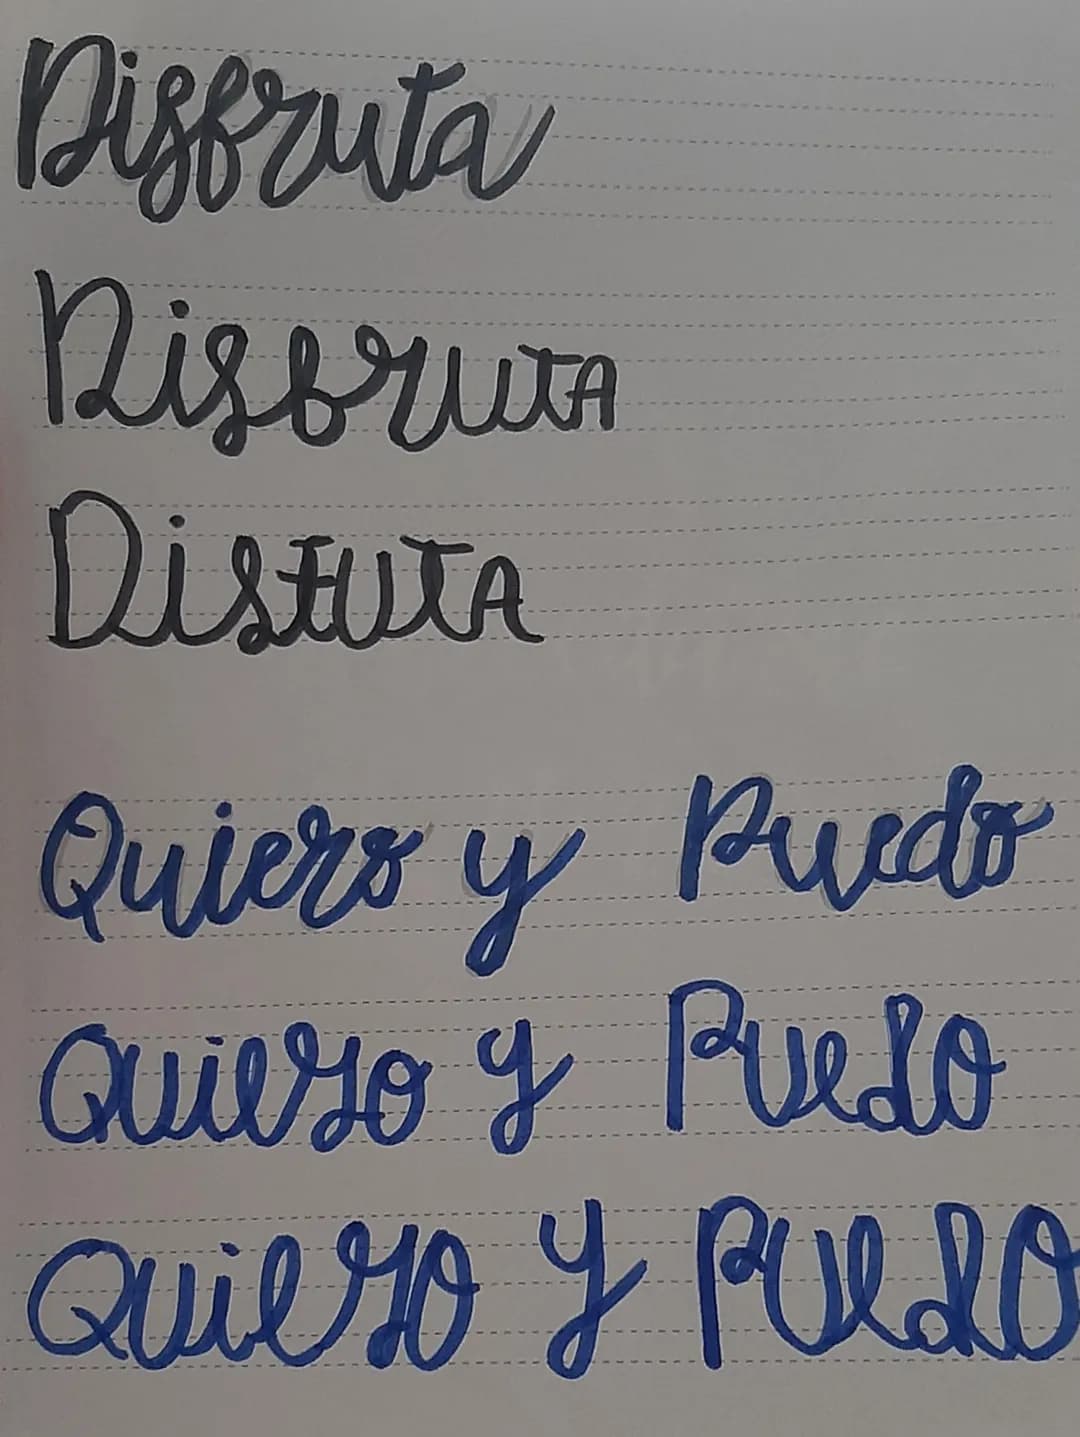 Disfruta
DisfrutA
DisfutA
Quiero y Puedo
Quiero y Puedo
Quiero y Puedo